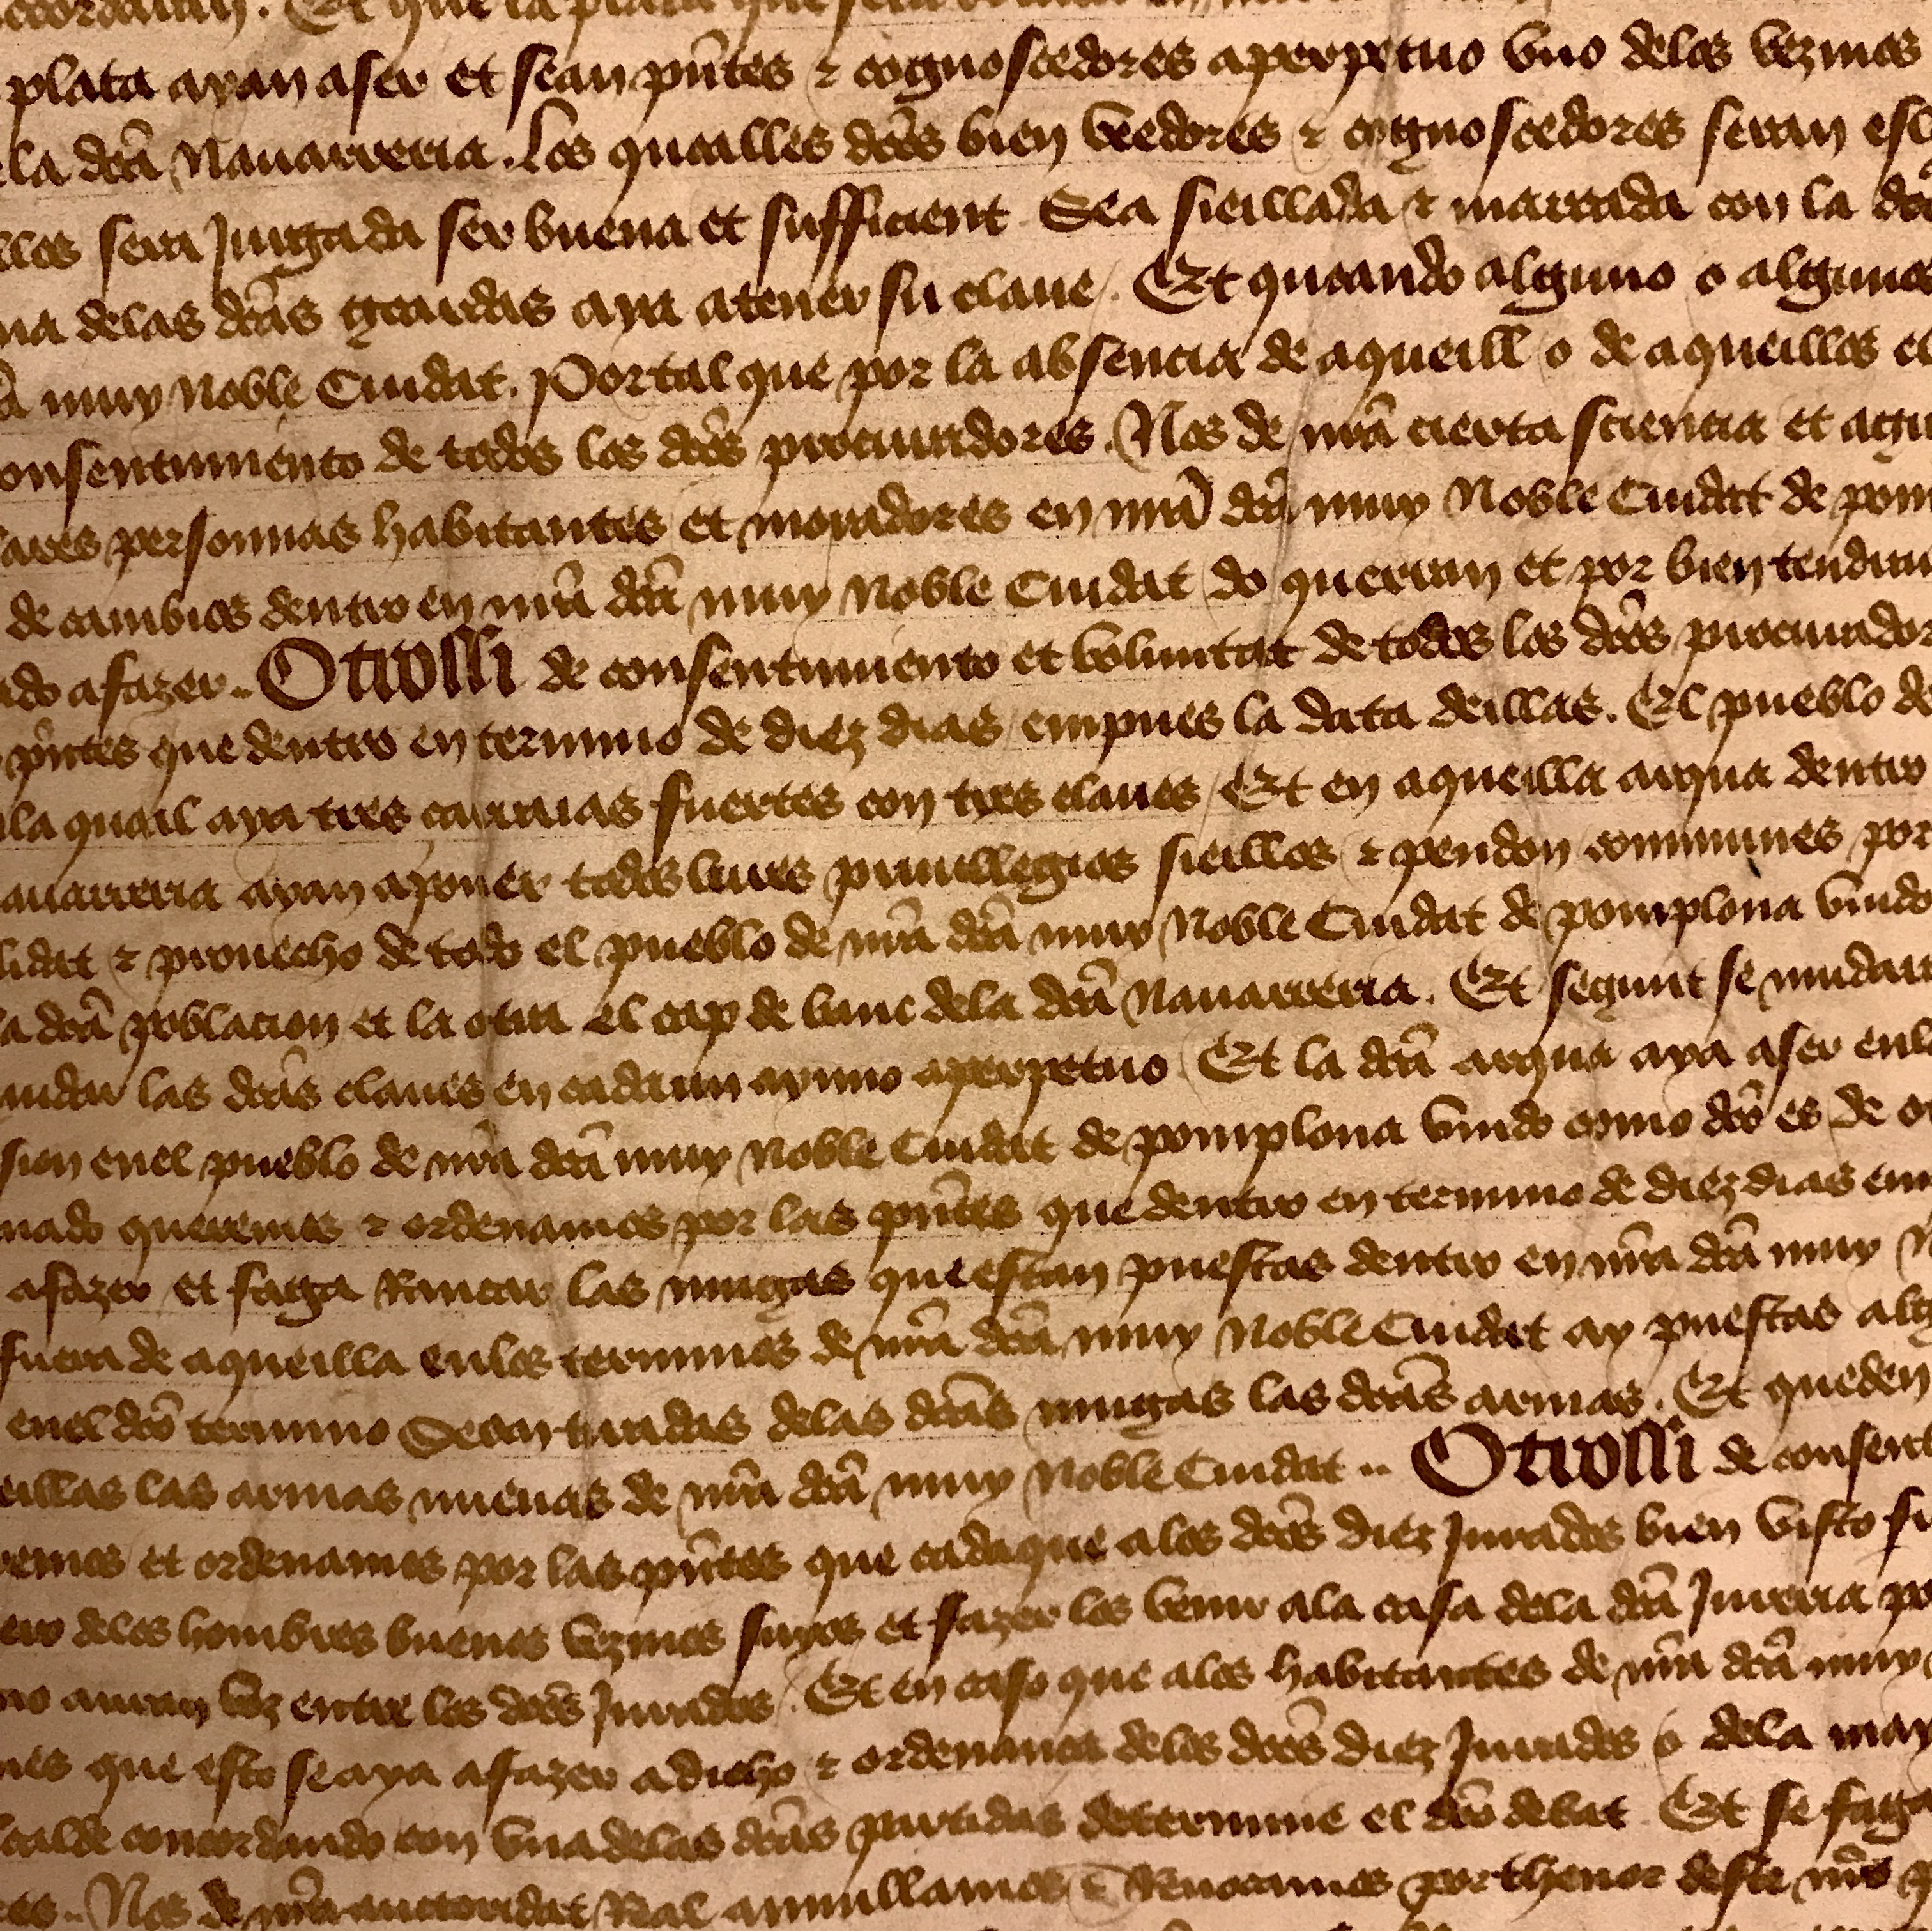 plata ayan a ser et sean pñtes ⁊ cognoscedores a perpetuo vno delos vezinos
la dcã Nauarreria. Los quoalles dcõs bien veedores ⁊ cognoscedores seran
llos sera Jurgada ser buena et sufficient. Sea sieillada ⁊ marcada con la dcã
na delas dcãs goardas aya a tener su claue. Et quoando alguno o algunos
muy Noble Ciudat. Por tal que por la absencia de aqueill o de aqueillos
onsentimiento de todos los dcõs procuradores. Nos de nrã cierta sciencia et
ares personnas habitantes et moradores en nrã dcã muy Noble Ciudat de
de cambios dentro en nrã dcã muy Noble Ciudat do querran et por bien tendran
do a fazer.. Otrossi de consentimiento et voluntat de todos los dcõs procurador
pñtes que dentro en termino de diez dias empues la data deillas. El pueblo de
la quoal aya tres carraias fuertes con tres claues Et en aqueilla arqua dentro
auarreria ayan a poner todos lures priuillegios sieillos ⁊ pendon communes por
idat ⁊ prouecho de todo el pueblo de nrã dcã muy Noble Ciudat de pomplona vnido
a dcã poblacion et la otra el cap de banc dela dcã Nauarreria. Et segunt se mudar
mudar las dcãs claues en cada un aynno a perpetuo Et la dcã arqua aya a ser
sien enel pueblo de nrã dcã muy Noble Ciudat de pomplona vnido como dcõ es de
nado queremos ⁊ ordenamos por las pñtes que dentro en termino de diez dias
a fazer et faga Rancar las mugas que estan puestas dentro en nrã dcã muy
fuera de aqueilla enlos terminos de nrã dcã muy Noble Ciudat ay puestas
enel dcõ termino Sean tiradas delas dcãs mugas las dcãs armas. Et queden
eillas las armas nueuas de nrã dcã muy Noble Ciudat.. Otrossi de
remos et ordenamos por las pñtes que cada que a los dcõs diez Jurados bien visto
ero delos hombres buenos vezinos suyos et fazer los venir ala casa dela dcã Jureria
no auran voz entre los dcõs Jurados. Et en caso que a los habitantes de nrã dcã muy
nes que esto se aya a fazer a dicho ⁊ ordenança delos dcõs diez Jurados o dela may
lcalde concordando con vna delas dcãs partidas determine el dcõ debat. Et se faga
res.. Nos de nrã auctoridat Real anullamos ⁊ Reuocamos por thenor deste